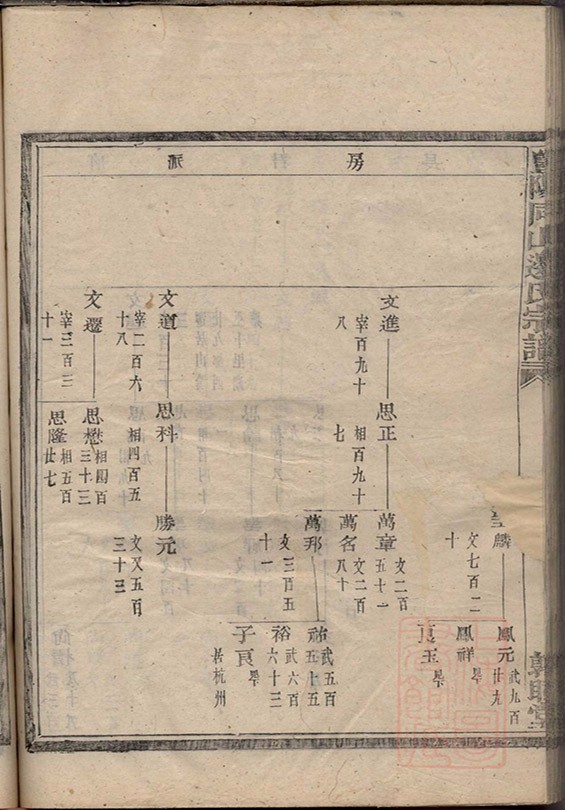 房
派
山邊氏宗譜
麟
文七百二
十
鳳元
武九百
廿九
鳳祥
早
玉
早
文進
宰百九十
八
思正
相百九十
七
萬章
文二百
五十一
萬名
文二百
八十
萬邦
文三百五
十一
武五百
五十五
裕
武六百
六十三
子良
早
居杭州
文道
宰二百六
十八
思科
相四百五
十
勝元
文又五百
三十三
文遷
宰三百三
十一
思懋
相四百
三十三
思隆
相五百
廿七